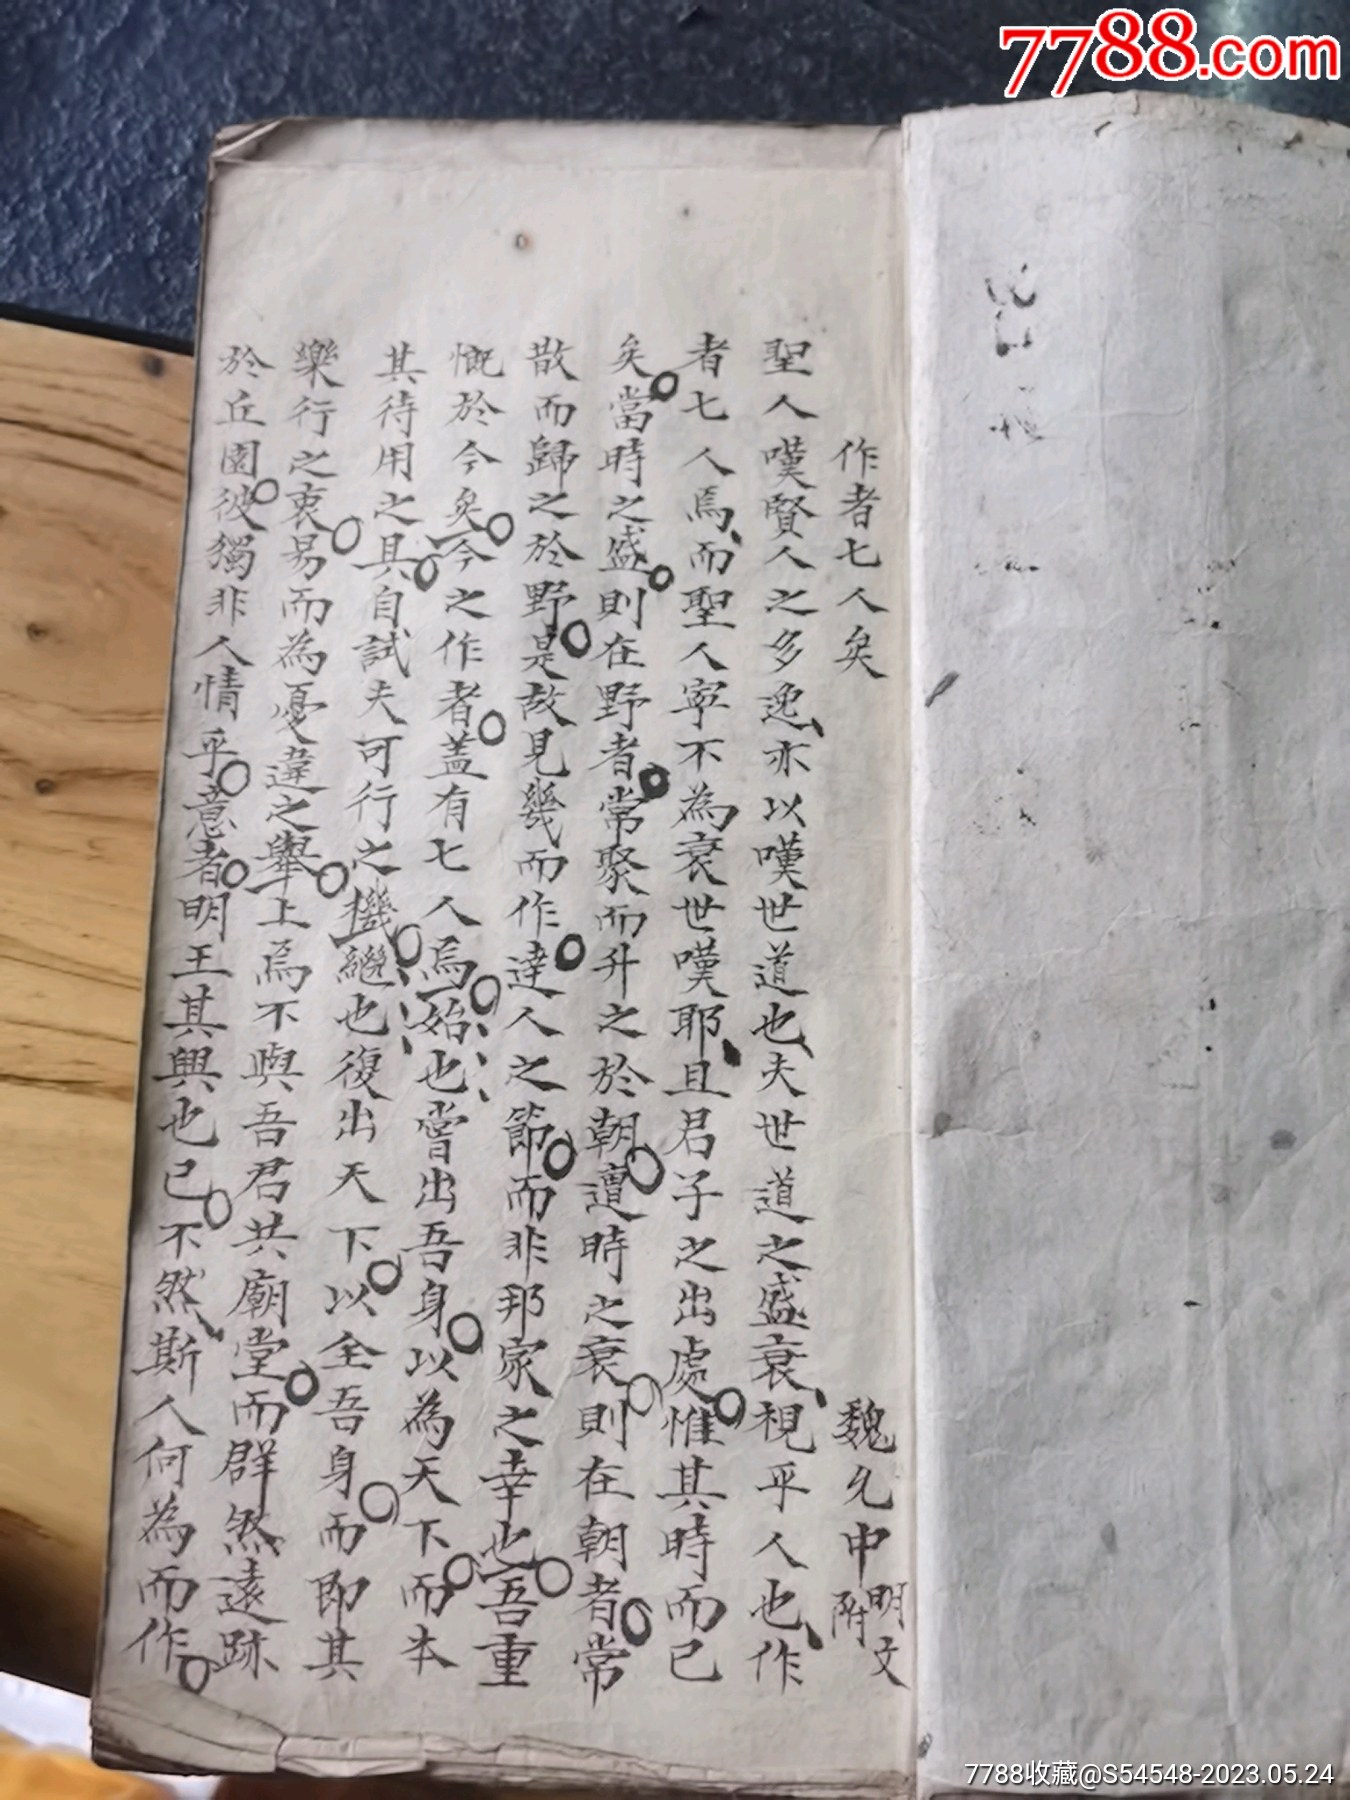 7788.com
作者七人矣 魏允中 明文 附
聖人嘆賢人之多逸亦以嘆世道也夫世道之盛衰視乎人也作
者七人焉而聖人寧不為衰世嘆耶且君子之出處惟其時而已
矣當時之盛則在野者常聚而升之於朝遭時之衰則在朝者常
散而歸之於野是故見幾而作達人之節而非邦家之幸也吾重
慨於今矣今之作者蓋有七人焉始也嘗出吾身以為天下而本
其待用之具自試夫可行之機繼也復出天下以全吾身而即其
樂行之衷易而為憂違之舉上焉不與吾君共廟堂而群然遠跡
於丘園彼獨非人情乎意者明王其興也已不然斯人何為而作
7788收藏@S54548-2023.05.24